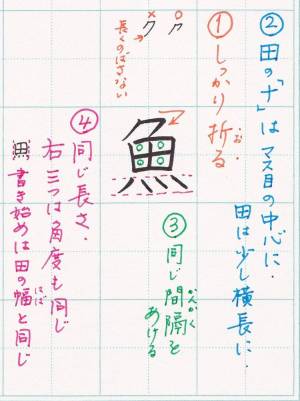 ②田の「十」はマス目の中心に.
田は少し横長に.
①しっかり折る
お
○
×
ク
ク
長くのばさない
魚
③同じ間隔を
かんかく
あける
④同じ長さ.
右三つは角度も同じ
書き始めは田の幅と同じ
はば